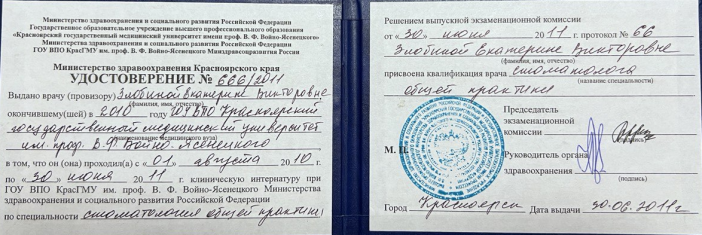 Министерство здравоохранения и социального развития Российской Федерации
Государственное образовательное учреждение высшего профессионального образования
«Красноярский государственный медицинский университет имени проф. В. Ф. Войно-Ясенецкого»
Министерства здравоохранения и социального развития Российской Федерации
ГОУ ВПО КрасГМУ им. проф. В. Ф. Войно-Ясенецкого Минздравсоцразвития России
Министерство здравоохранения Красноярского края
УДОСТОВЕРЕНИЕ № 666/2011
Выдано врачу (провизору) Злобиной Екатерине Викторовне
(фамилия, имя, отчество)
окончившему(шей) в 2010 году ГОУ ВПО Красноярский
государственный медицинский университет
(наименование медицинского вуза)
им. проф. В.Ф. Войно-Ясенецкого
в том, что он (она) проходил(а) с «01» августа 2010 г.
по «30» июня 2011 г. клиническую интернатуру при
ГОУ ВПО КрасГМУ им. проф. В. Ф. Войно-Ясенецкого Министерства
здравоохранения и социального развития Российской Федерации
по специальности стоматология общей практики
Решением выпускной экзаменационной комиссии
от «30» июня 2011 г. протокол № 66
Злобиной Екатерине Викторовне
(фамилия, имя, отчество)
присвоена квалификация врача стоматолога
(название специальности)
общей практики
Председатель
экзаменационной
комиссии
(подпись)
М. П.
Руководитель органа
здравоохранения
(подпись)
Город Красноярск Дата выдачи 30.06.2011г